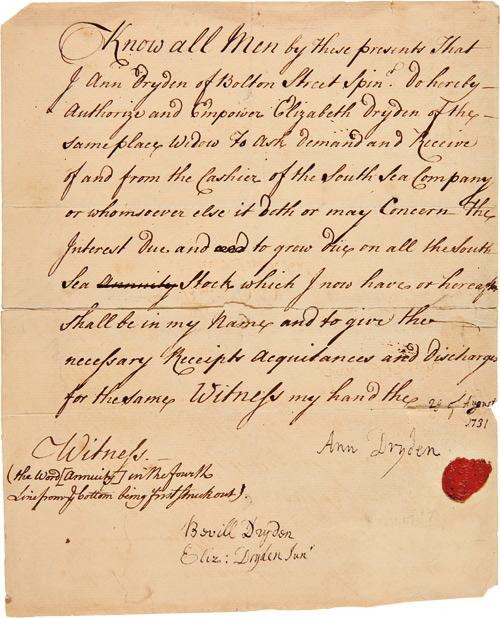 Know all Men by these presents That
I Ann Dryden of Bolton Street Spinr. Do hereby
Authorize and Empower Elizabeth Dryden of the
same place Widow To Ask Demand and Receive
of and from the Cashier of the South Sea Company
or whomsoever else it doth or may Concern the
Interest Due and and to grow due on all the South
Sea Annuity Stock which I now have or hereafter
shall be in my Name and to give the
necessary Receipts Acquitances and Discharges
for the same Witness my hand the 29 of August
1731
Ann Dryden
Witness
(the Word [Annuity] in the fourth
Line from ye bottom being first struck out).
Bevill Dryden
Eliz: Dryden Junr